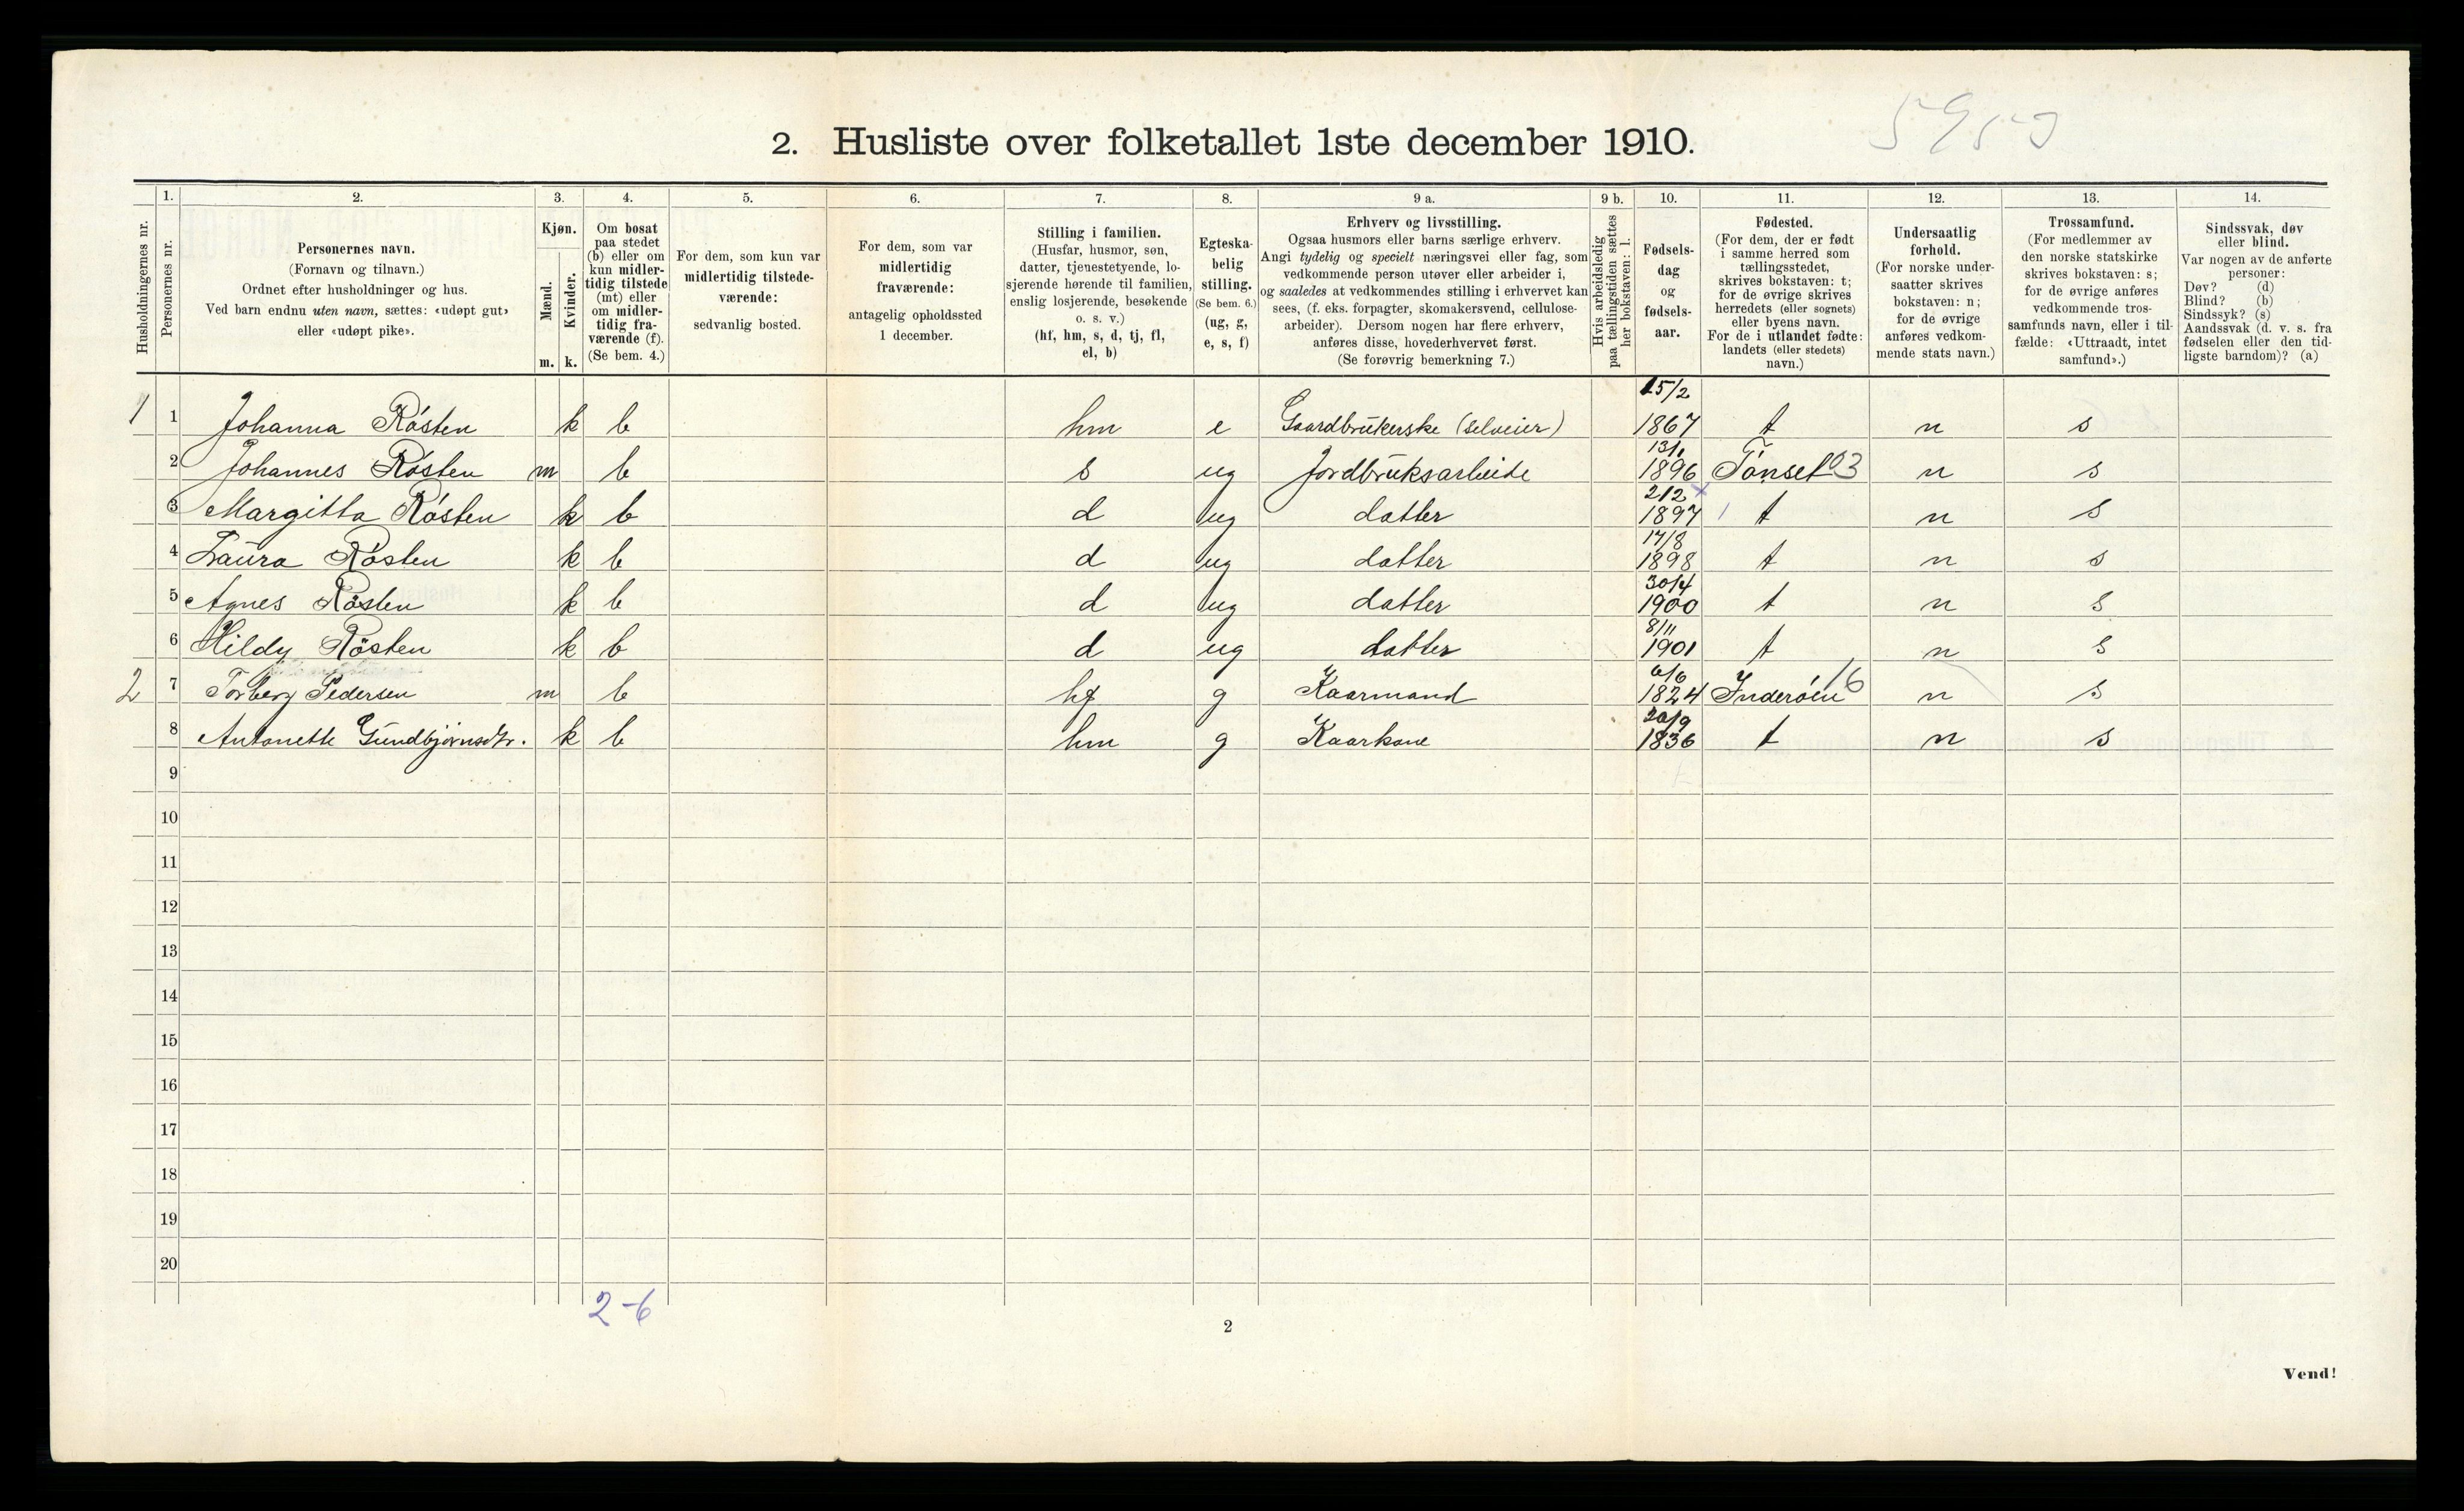 2. Husliste over folketallet 1ste december 1910.
Husholdningernes nr.
1.
Personernes nr.
2.
Personernes navn.
(Fornavn og tilnavn.)
Ordnet efter husholdninger og hus.
Ved barn endnu uten navn, sættes: «udøpt gut»
eller «udøpt pike».
3.
Kjøn.
Mænd.
m.
Kvinder.
k.
4.
Om bosat
paa stedet
(b) eller om
kun midler-
tidig tilstede
(mt) eller
om midler-
tidig fra-
værende (f).
(Se bem. 4.)
5.
For dem, som kun var
midlertidig tilstede-
værende:
sedvanlig bosted.
6.
For dem, som var
midlertidig
fraværende:
antagelig opholdssted
1 december.
7.
Stilling i familien.
(Husfar, husmor, søn,
datter, tjenestetyende, lo-
sjerende hørende til familien,
enslig losjerende, besøkende
o. s. v.)
(hf, hm, s, d, tj, fl,
el, b)
8.
Egteska-
belig
stilling.
(Se bem. 6.)
(ug, g,
e, s, f)
9 a.
Erhverv og livsstilling.
Ogsaa husmors eller barns særlige erhverv.
Angi tydelig og specielt næringsvei eller fag, som
vedkommende person utøver eller arbeider i,
og saaledes at vedkommendes stilling i erhvervet kan
sees, (f. eks. forpagter, skomakersvend, cellulose-
arbeider). Dersom nogen har flere erhverv,
anføres disse, hovederhvervet først.
(Se forøvrig bemerkning 7.)
9 b.
Hvis arbeidsledig
paa tællingstiden sættes
her bokstaven: l.
10.
Fødsels-
dag
og
fødsels-
aar.
11.
Fødested.
(For dem, der er født
i samme herred som
tællingsstedet,
skrives bokstaven: t;
for de øvrige skrives
herredets (eller sognets)
eller byens navn.
For de i utlandet fødte:
landets (eller stedets)
navn.)
12.
Undersaatlig
forhold.
(For norske under-
saatter skrives
bokstaven: n;
for de øvrige
anføres vedkom-
mende stats navn.)
13.
Trossamfund.
(For medlemmer av
den norske statskirke
skrives bokstaven: s;
for de øvrige anføres
vedkommende tros-
samfunds navn, eller i til-
fælde: «Uttraadt, intet
samfund».)
14.
Sindssvak, døv
eller blind.
Var nogen av de anførte
personer:
Døv? (d)
Blind? (b)
Sindssyk? (s)
Aandssvak (d. v. s. fra
fødselen eller den tid-
ligste barndom)? (a)
1 1 Johanna Røsten k b hm e Gaardbrukerske (selveier) 15/2 1867 t n s
2 Johannes Røsten m b s ug Jordbruksarbeide 1896 Tønset 03 n s
3 Margitta Røsten k b d ug datter 21/2 1897 t n s
4 Laura Røsten k b d ug datter 17/8 1898 t n s
5 Agnes Røsten k b d ug datter 30/4 1900 t n s
6 Hildy Røsten k b d ug datter 8/11 1901 t n s
2 7 Torberg Pedersen m b hf g Kaarmand 6/6 1824 Inderøen 16 n s
8 Antonette Gundbjørnsdtr. k b hm g Kaarkone 20/9 1836 t n s
9
10
11
12
13
14
15
16
17
18
19
20
2-6
2
Vend!